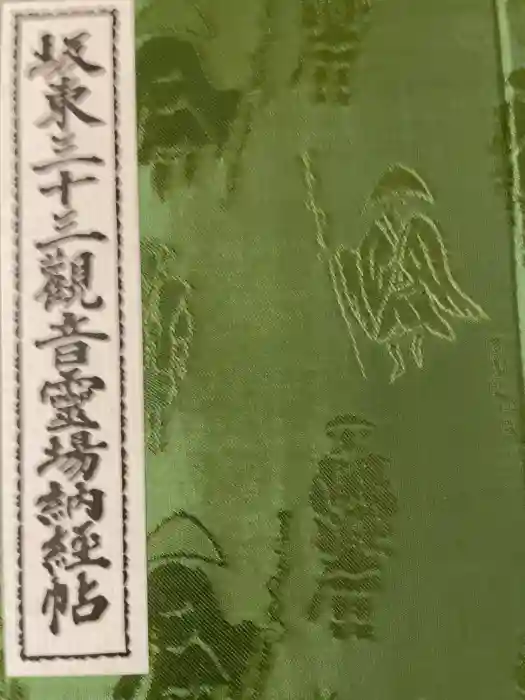 坂東三十三觀音霊場納経帖